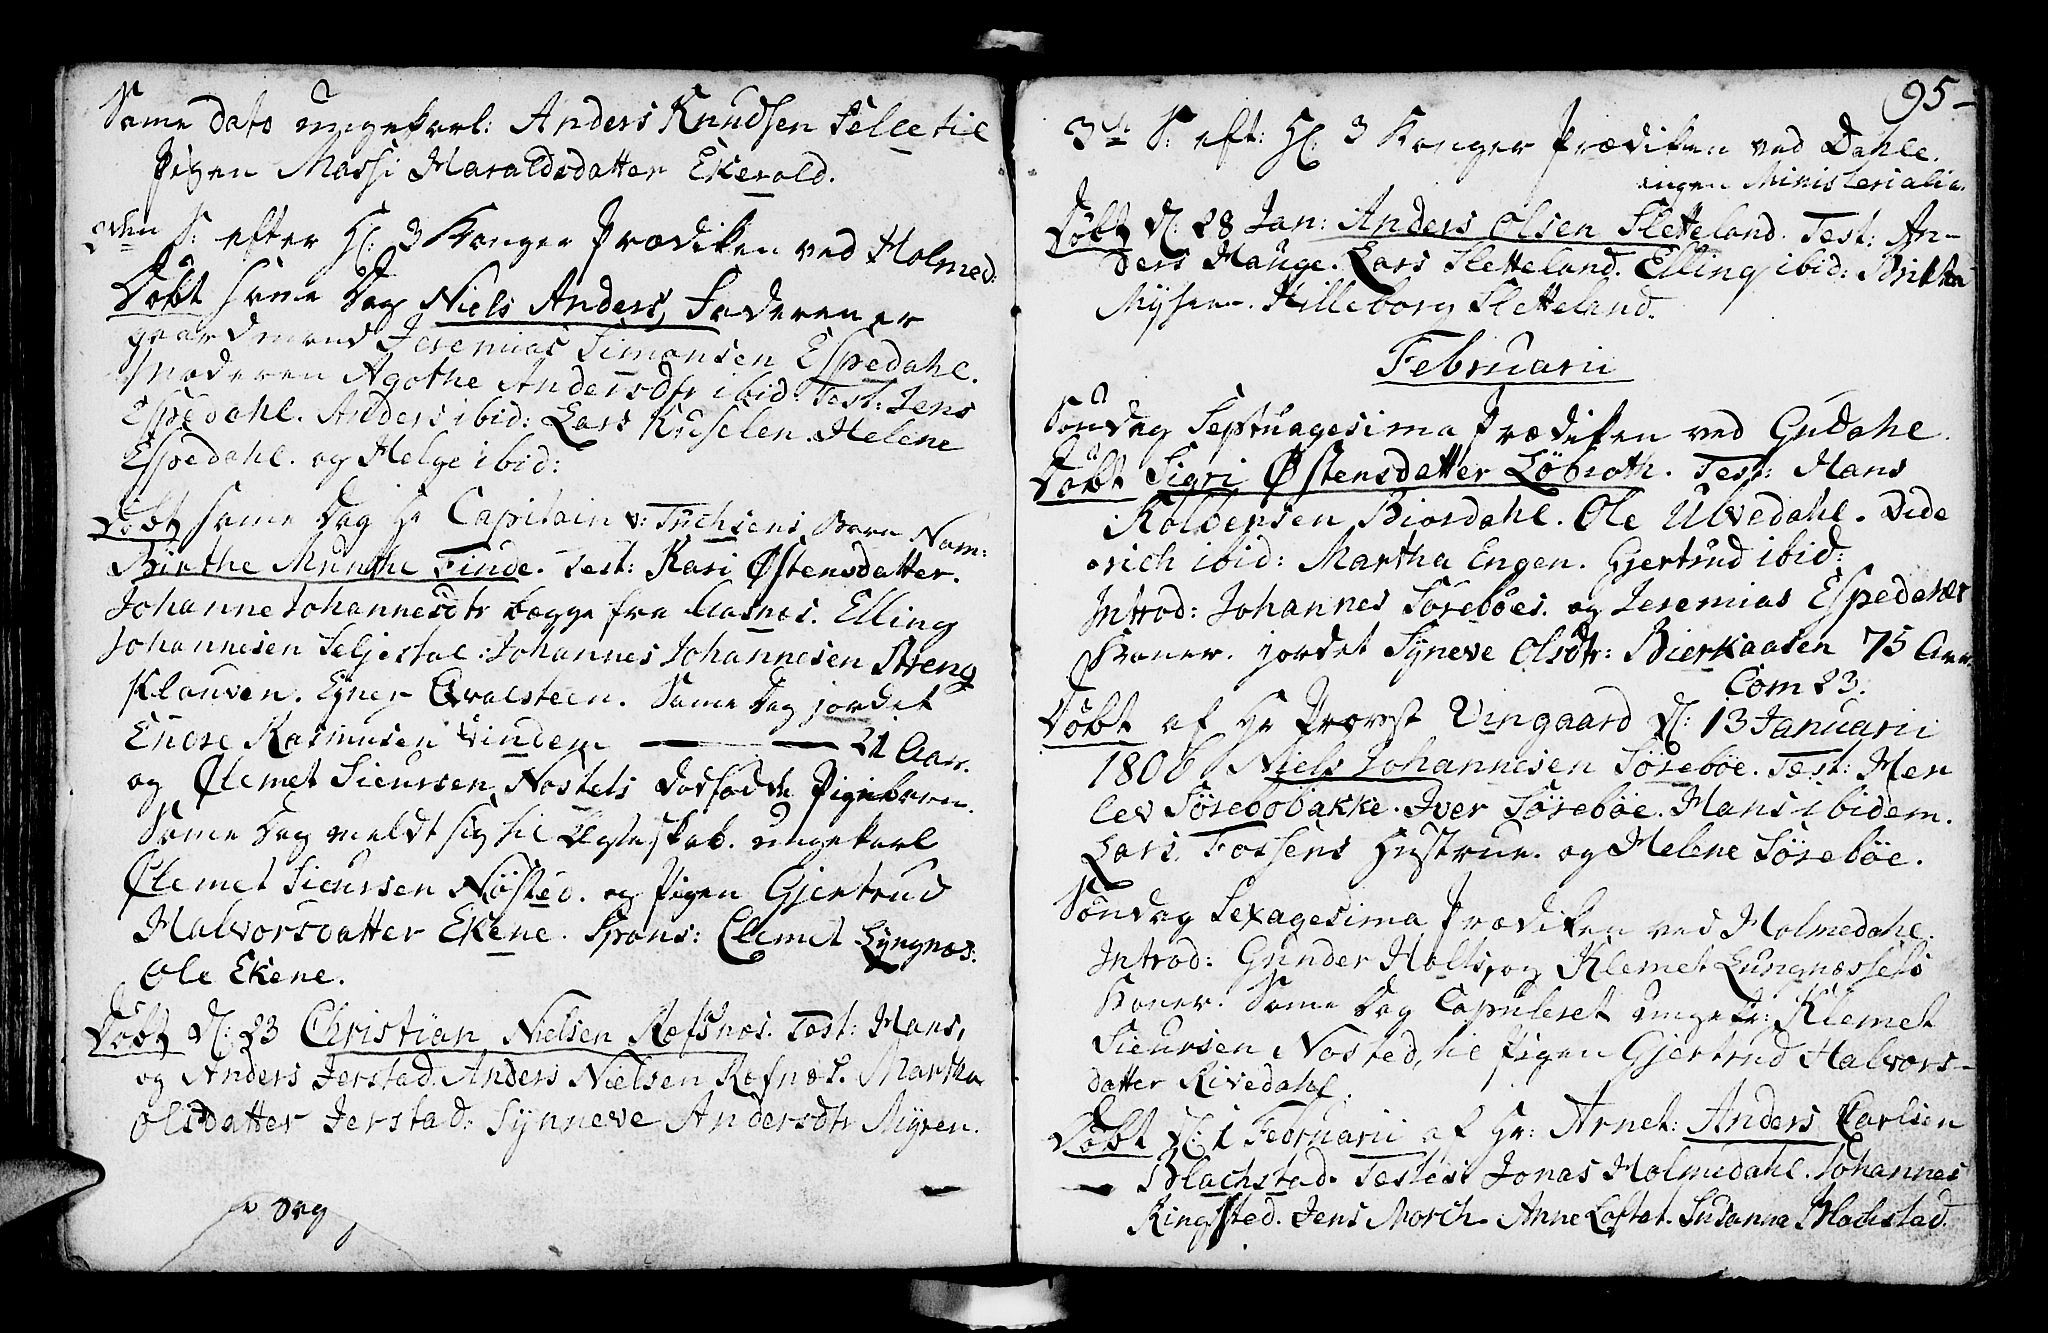 Same dato ungekarl: Anders Knudsen Selletil
Pigen Massi Haraldsdatter Ekerold.
2den S: efter Hl: 3 Konger Prædiken ved Holmed:
Döbt same Dag Niels Anders, Faderen er
gaardmand Jeremias Simonsen Espedahl.
Moderen Agothe Andersdtr ibid: Test: Jens
Espedahl. Anders ibid: Lars Kuselen. Helene
Espedahl. og Helge ibid:
Döbt same Dag Hr Capitain v: Tuchsens Barn Nom:
Birthe Munthe Finde. Test: Kari Østensdatter.
Johanne Johannesdtr begge fra Aasnes. Elling
Johannesen Seljestal: Johannes Johannesen Streng
Klouven. Egner Qvalsteen. Same Dag jordet
Endre Rasmusen Vindem — — 21 Aar.
og Clemet Sieursen Nosteds dödfödde Pigebarn.
Same Dag meldt sig til Egteskab. ungekarl
Clemet Sieursen Nösted. og Pigen Gjertrud
Halvorsdatter Ekene. Spons: Clemet Lyngnes:
Ole Ekene.
Döbt d: 23 Christian Nielsen Refsnes. Test: Hans,
og Anders Jerstad. Anders Nielsen Refnes. Martha
Olsdatter Jerstad: Synneve Andersdtr Myren.
Dag
95
3de S: eft: Hl: 3 Konger Prædiken ved Dahle.
ingen Ministerialia.
Döbt d: 28 Jan: Anders Olsen Sletteland. Test: An-
ders Hauge. Lars Sletteland. Elling ibid: Brithe
Myhren. Hilleborg Sletteland.
Februarii
Söndag Septuagesima Prædiken ved Gudahl.
Döbt Sigri Østensdatter Löbroth. Test: Hans
Kolbensen Biordahl. Ole Ulvedahl. Dide
rich ibid: Martha Engen. Gjertrud ibid:
Introd: Johannes Söreböes. og Jeremias Espedahls
Koner. jordet Syneve Olsdtr: Bierkaasen 75 Aar.
Com 23.
Döbt af Hr Provst Vingaard d: 13 Januarii
1806 Niels Johannesen Söreböe. Test: Her
lev Söreböbakke. Iver Söreböe. Hans ibidem.
Lars Fossens Hustrue. og Helene Söreböe.
Söndag Sexagesima Prædiken ved Holmedahl.
Introd: Gunder Holts, og Klemet Lungnessets
Koner. Same Dag Copuleret ungek: Klemet
Sieursen Nosted, til Pigen Gjertrud Halvors-
datter Rivedahl.
Döbt d: 1 Februarii af Hr: Arnet: Anders Carlsen
Blachstad. Testes: Jonas Holmedahl. Johannes
Ringsted. Jens Morch. Anne Loftet. Susanna Blachstad.